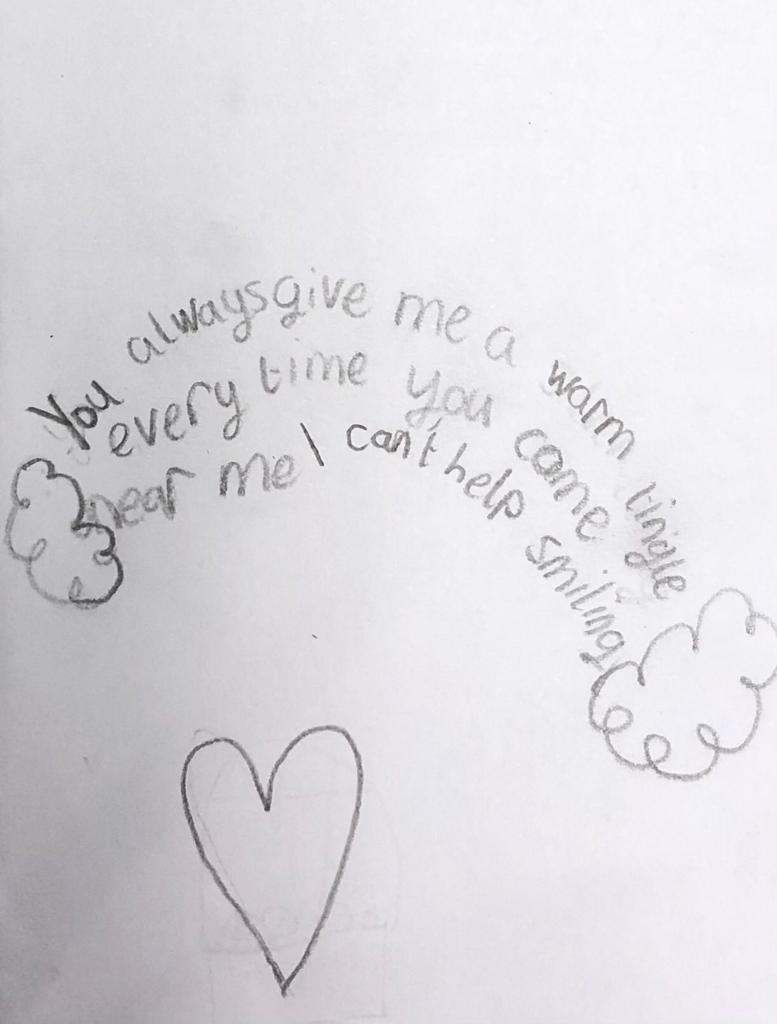 You always give me a warm tingle
every time you come
near me I can't help smiling